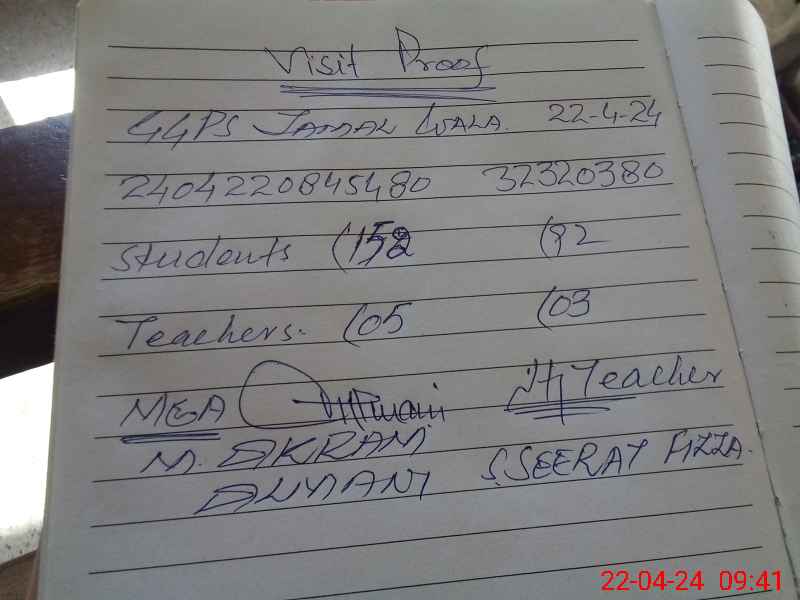 Visit Proof
GGPS JAMAL WALA. 22-4-24
2404220845480 32320380
Students (152 (92
Teachers. (05 (03
MEA Teacher
M. AKRAM
S.SEERAT FIZZA.
22-04-24 09:41